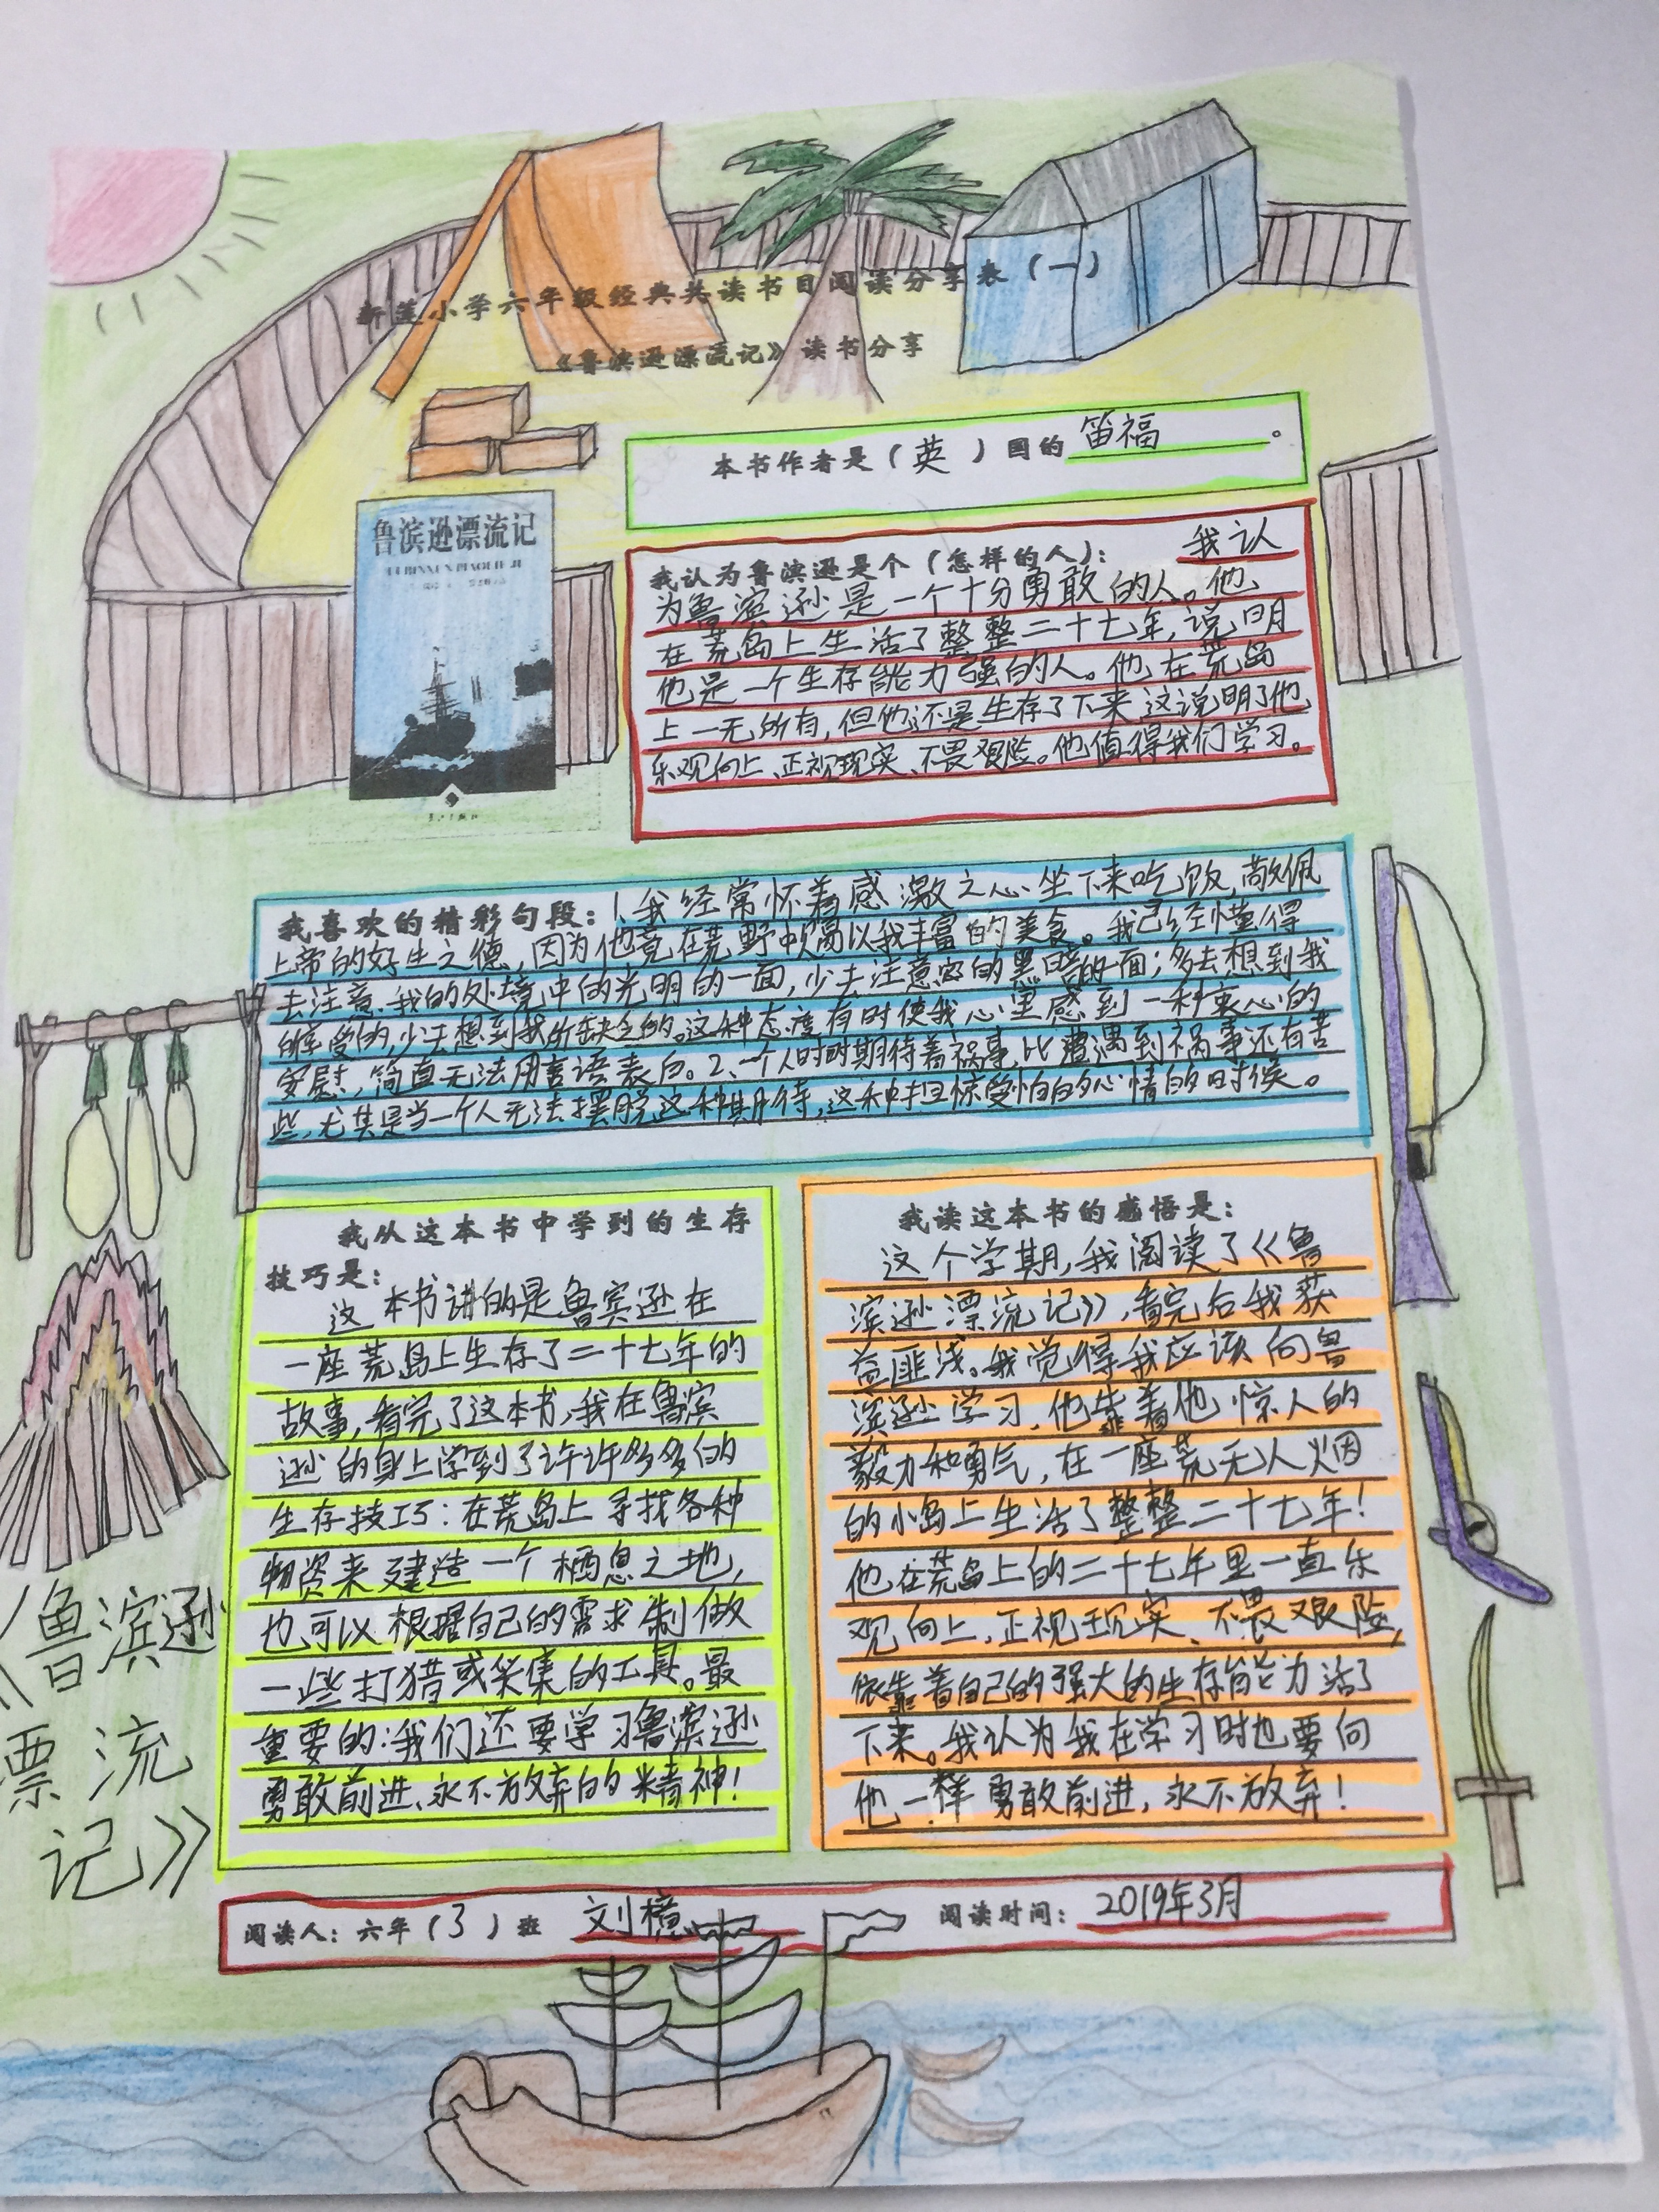 新莲小学六年级经典共读书目阅读分享表（一）
《鲁滨逊漂流记》读书分享
本书作者是（英）国的笛福。
鲁滨逊漂流记
我认为鲁滨逊是个（怎样的人）：我认
为鲁滨逊是一个十分勇敢的人。他
在荒岛上生活了整整二十七年，说明
他是一个生存能力强的人。他在荒岛
上一无所有，但他还是生存了下来，这说明了他
乐观向上、正视现实、不畏艰险。他值得我们学习。
我喜欢的精彩句段：1、我经常怀着感激之心坐下来吃饭，敬佩
上帝的好生之德，因为他竟在荒野中赐以我丰富的美食。我已经懂得
去注意我的处境中的光明的一面，少去注意它的黑暗的一面；多去想到我
所享受的，少去想到我所缺乏的。这种态度有时使我心里感到一种衷心的
安慰，简直无法用言语表白。2、一个人时时期待着祸事，比遭遇到祸事还有苦
些，尤其是当一个人无法摆脱这种期待，这种担惊受怕的心情的时候。
我从这本书中学到的生存
技巧是：
这本书讲的是鲁宾逊在
一座荒岛上生存了二十七年的
故事，看完了这本书，我在鲁滨
逊的身上学到了许许多多的
生存技巧：在荒岛上寻找各种
物资来建造一个栖息之地，
也可以根据自己的需求制做
一些打猎或采集的工具。最
重要的：我们还要学习鲁滨逊
勇敢前进、永不放弃的精神！
我读这本书的感悟是：
这个学期，我阅读了《鲁
滨逊漂流记》，看完后我获
益匪浅。我觉得我应该向鲁
滨逊学习，他靠着他惊人的
毅力和勇气，在一座荒无人烟
的小岛上生活了整整二十七年！
他在荒岛上的二十七年里一直乐
观向上，正视现实、不畏艰险，
依靠着自己的强大的生存能力活了
下来。我认为我在学习时也要向
他一样勇敢前进，永不放弃！
《鲁滨逊
漂流
记》
阅读人：六年（3）班 刘樟 阅读时间：2019年3月